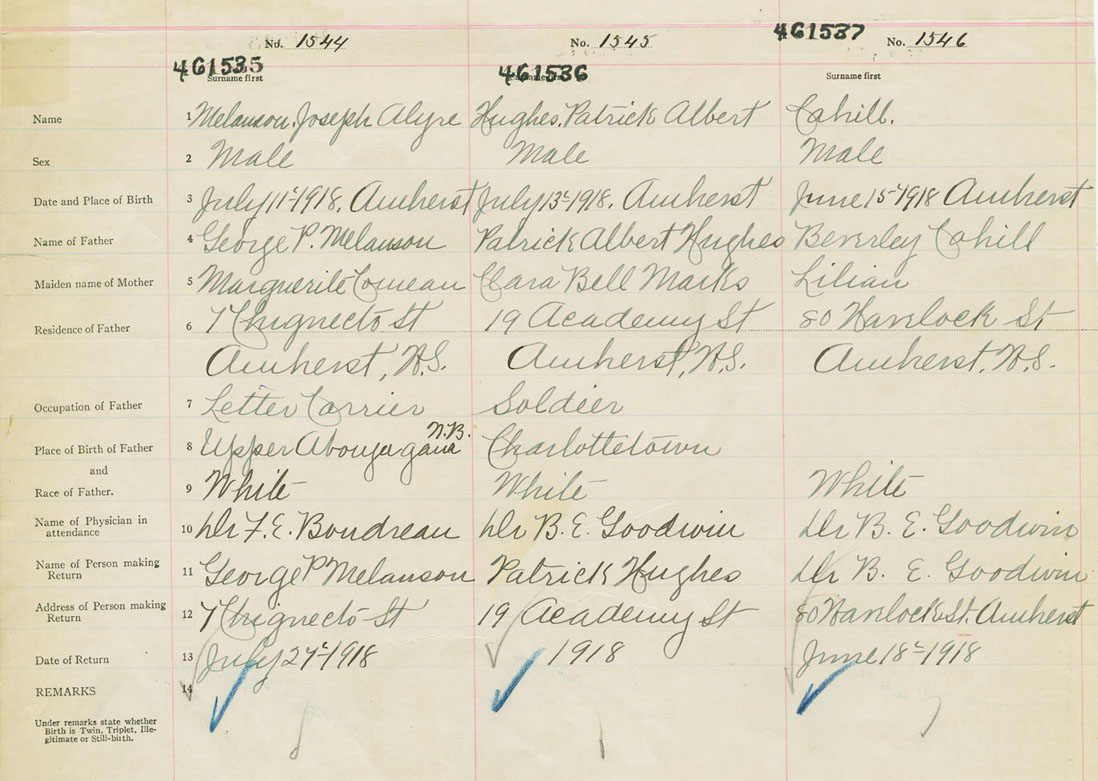 461537
No. 1544 No. 1545 No. 1546
461535 461536
Surname first Surname first Surname first
Name 1 Melanson, Joseph Alyre Hughes, Patrick Albert Cahill.
Sex 2 Male Male Male
Date and Place of Birth 3 July 11th 1918, Amherst July 13th 1918, Amherst June 15th 1918 Amherst
Name of Father 4 George P. Melanson Patrick Albert Hughes Beverley Cahill
Maiden name of Mother 5 Marguerite Comeau Clara Bell Marks Lilian
Residence of Father 6 7 Chignecto St 19 Academy St 80 Havelock St
Amherst, N.S. Amherst, N.S. Amherst, N.S.
Occupation of Father 7 Letter Carrier Soldier
Place of Birth of Father 8 Upper N.B. Charlottetown
and
Race of Father. 9 White White White
Name of Physician in
attendance 10 Dr F. E. Boudreau Dr B. E. Goodwin Dr B. E. Goodwin
Name of Person making
Return 11 George P Melanson Patrick Hughes Dr B. E. Goodwin
Address of Person making
Return 12 7 Chignecto St 19 Academy St 80 Havelock St. Amherst
Date of Return 13 July 27th 1918 1918 June 18th 1918
REMARKS 14
Under remarks state whether
Birth is Twin, Triplet, Ille-
gitimate or Still-birth.